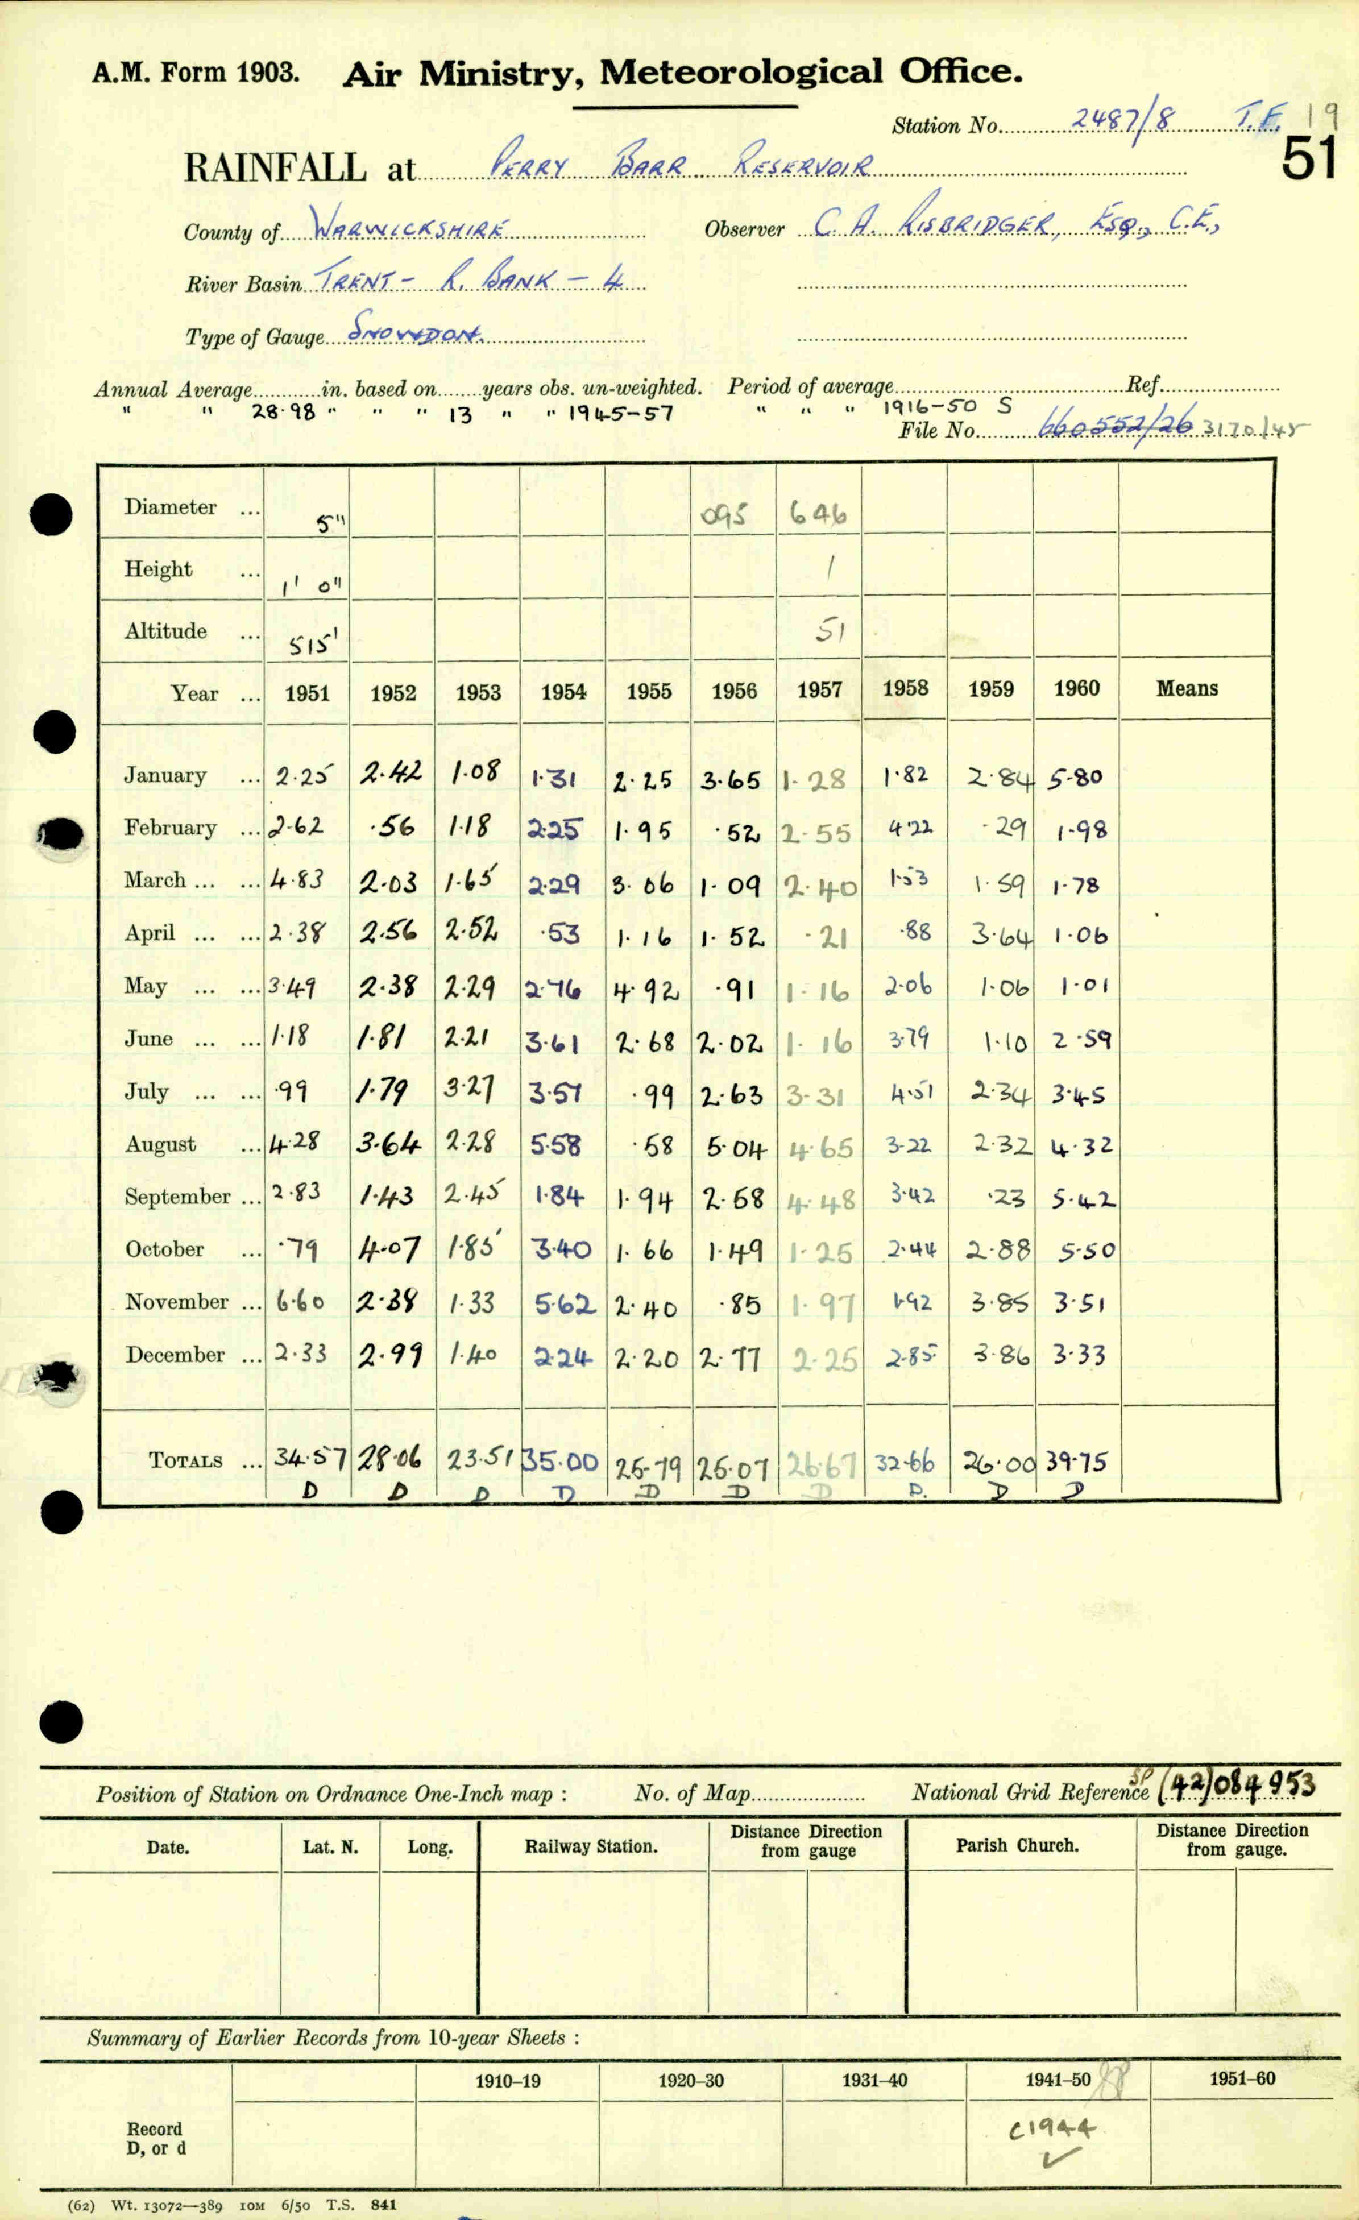 A.M. Form 1903. Air Ministry, Meteorological Office.
Station No. 2487/8 T.F. 19
51
RAINFALL at PERRY BARR RESERVOIR
County of WARWICKSHIRE Observer C. A. RISBRIDGER, ESQ., C.E.,
River Basin TRENT - R. BANK - 4
Type of Gauge SNOWDON.
Annual Average in. based on years obs. un-weighted. Period of average Ref.
" " 28.98 " " " 13 " " 1945-57 " " " 1916-50 S
File No. 660552/26 3170/45
Diameter ... 5" 095 646
Height ... 1' 0" 1
Altitude ... 515' 51
Year ... 1951 1952 1953 1954 1955 1956 1957 1958 1959 1960 Means
January ... 2.25 2.42 1.08 1.31 2.25 3.65 1.28 1.82 2.84 5.80
February ... 2.62 .56 1.18 2.25 1.95 .52 2.55 4.22 .29 1.98
March ... ... 4.83 2.03 1.65 2.29 3.06 1.09 2.40 1.53 1.59 1.78
April ... ... 2.38 2.56 2.52 .53 1.16 1.52 .21 .88 3.64 1.06
May ... ... 3.49 2.38 2.29 2.76 4.92 .91 1.16 2.06 1.06 1.01
June ... ... 1.18 1.81 2.21 3.61 2.68 2.02 1.16 3.79 1.10 2.59
July ... ... .99 1.79 3.27 3.57 .99 2.63 3.31 4.51 2.34 3.45
August ... 4.28 3.64 2.28 5.58 .58 5.04 4.65 3.22 2.32 4.32
September ... 2.83 1.43 2.45 1.84 1.94 2.58 4.48 3.42 .23 5.42
October ... .79 4.07 1.85 3.40 1.66 1.49 1.25 2.44 2.88 5.50
November ... 6.60 2.38 1.33 5.62 2.40 .85 1.97 1.92 3.85 3.51
December ... 2.33 2.99 1.40 2.24 2.20 2.77 2.25 2.85 3.86 3.33
TOTALS ... 34.57 28.06 23.51 35.00 25.79 25.07 26.67 32.66 26.00 39.75
D D D D D D D D. D D
Position of Station on Ordnance One-Inch map : No. of Map National Grid Reference SP (42)084953
Date. Lat. N. Long. Railway Station. Distance Direction from gauge Parish Church. Distance Direction from gauge.
Summary of Earlier Records from 10-year Sheets :
1910–19 1920–30 1931–40 1941–50 1951–60
Record
D, or d
c1944
✓
(62) Wt. 13072—389 10M 6/50 T.S. 841